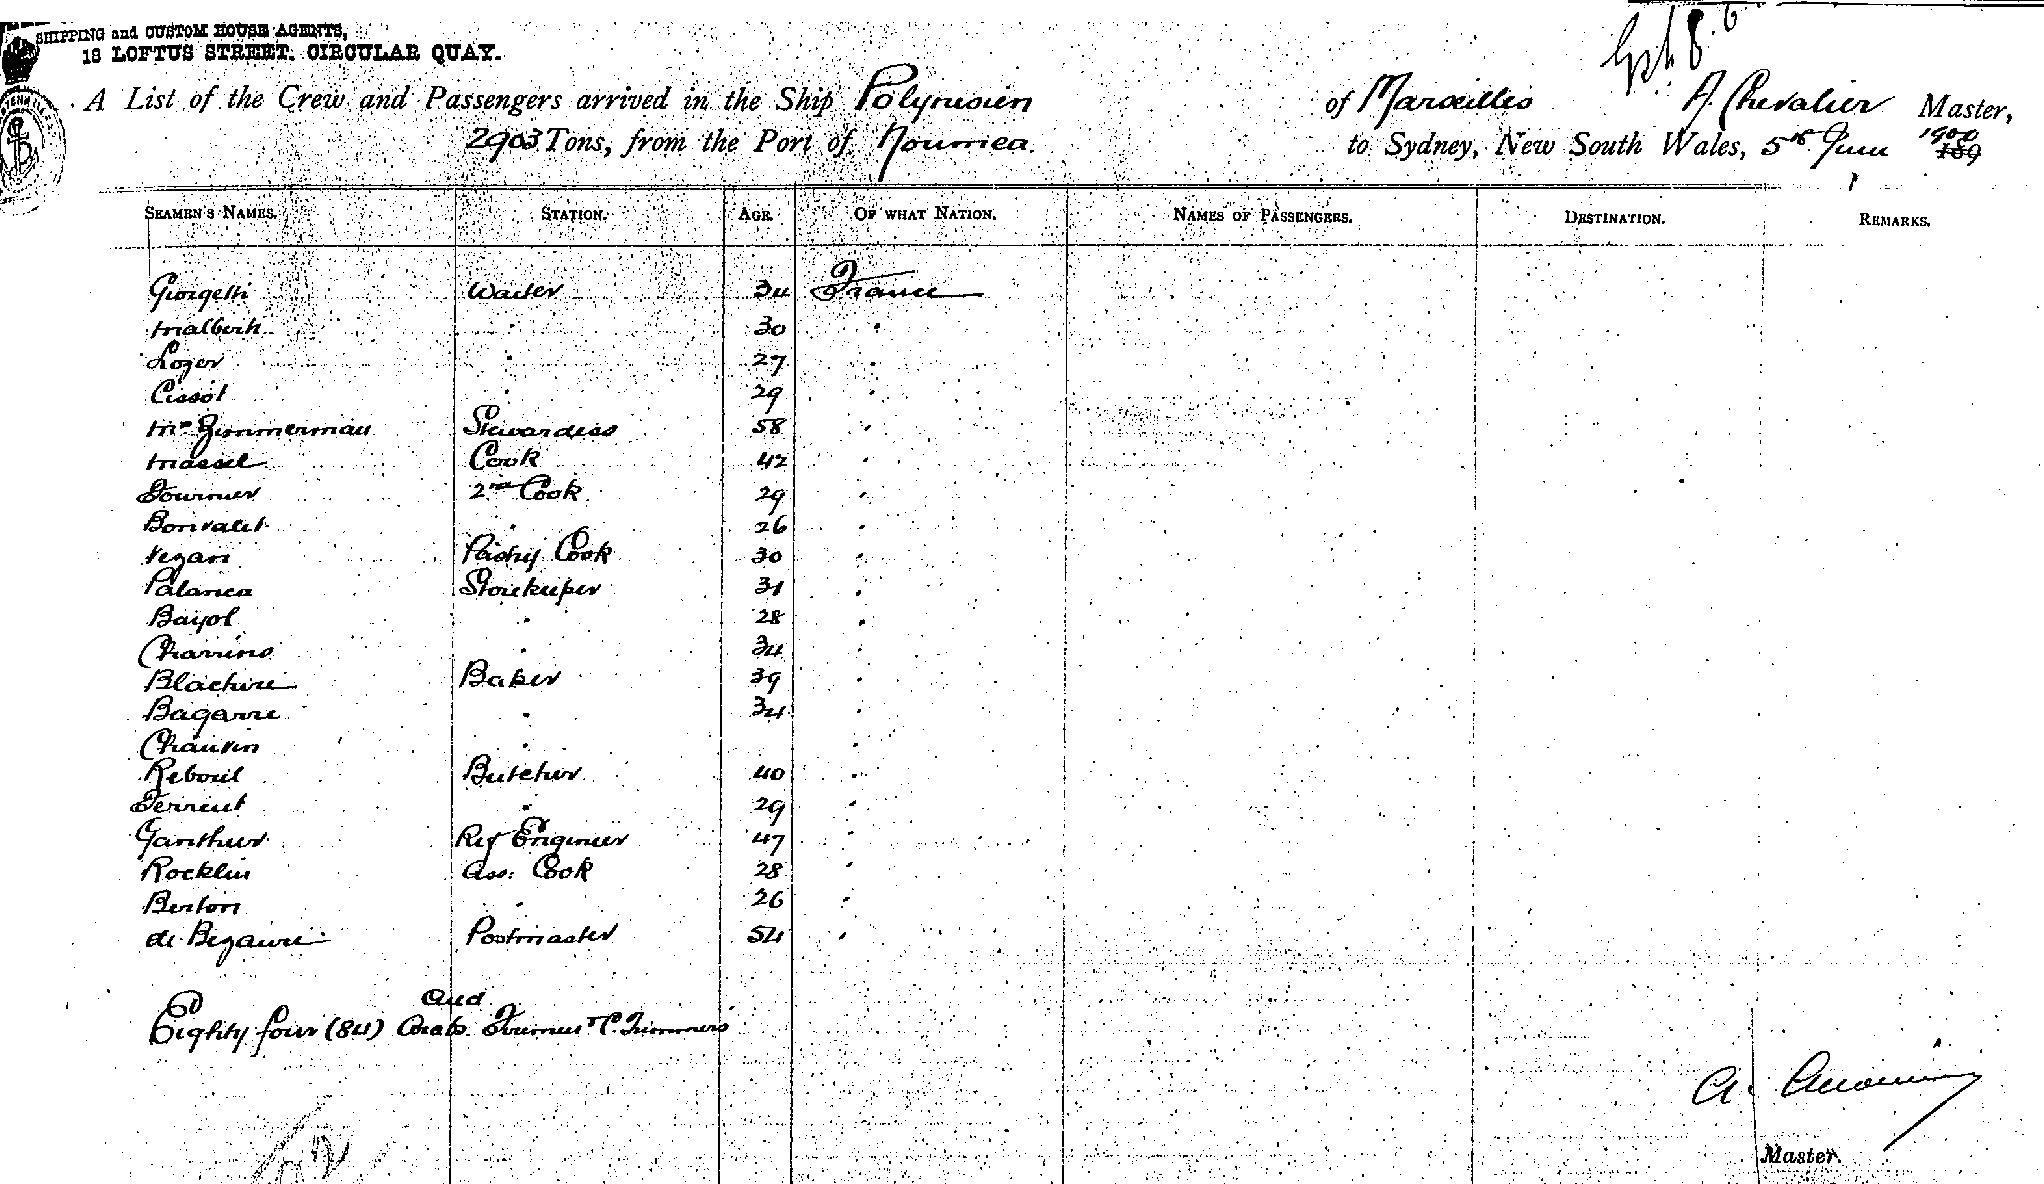 SHIPPING and CUSTOM HOUSE AGENTS,
18 LOFTUS STREET. CIRCULAR QUAY.
A List of the Crew and Passengers arrived in the Ship Polynesien of Marseilles A. Chevalier Master,
2903 Tons, from the Port of Noumea. to Sydney, New South Wales, 5th June 1900 189
SEAMEN'S NAMES. STATION. AGE. OF WHAT NATION. NAMES OF PASSENGERS. DESTINATION. REMARKS.
Giorgetti Waiter 34 France
Malberti " 30 "
Lozer " 27 "
Cissot " 29 "
Mme Zimmerman Stewardess 58 "
Massel Cook 42 "
Fournier 2nd Cook 29 "
Bonvalet " 26 "
Vezan Pastry Cook 30 "
Palanca Storekeeper 31 "
Bayol " 28 "
Charrins " 34 "
Blachere Baker 39 "
Bagarre " 34 "
Chauvin " "
Reboul Butcher 40 "
Terrent " 29 "
Ganthier Ref Engineer 47 "
Rocklin Ass. Cook 28 "
Berton " 26 "
de Bezaure Postmaster 54 "
and
Eighty four (84) Arabs Trimmers
A.
Master.